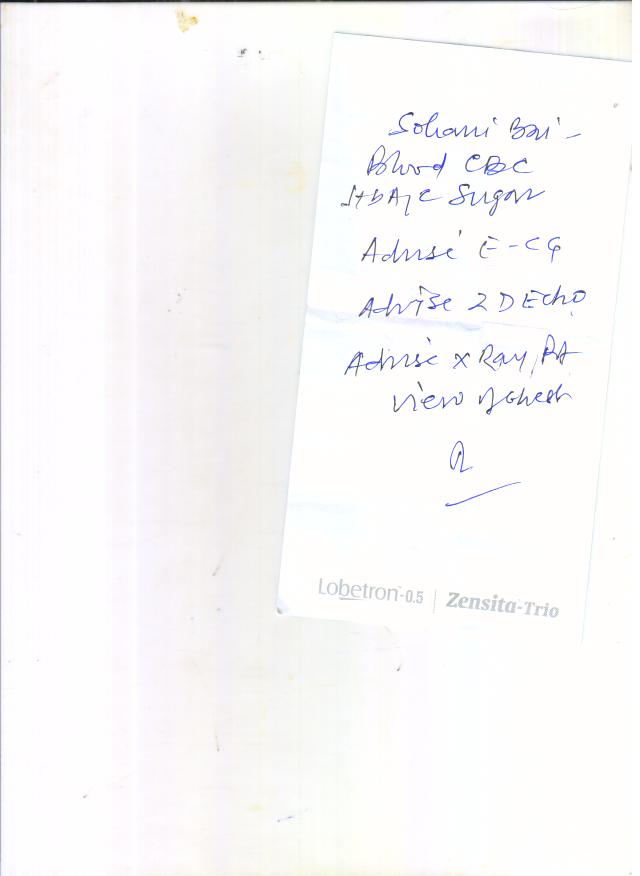 Sohani Bai -
Blood CBC
HbA1C Sugar
Advise E-CG
Advise 2 D Echo
Advise X Ray, PA
View of Chest
Lobetron-0.5 | Zensita-Trio